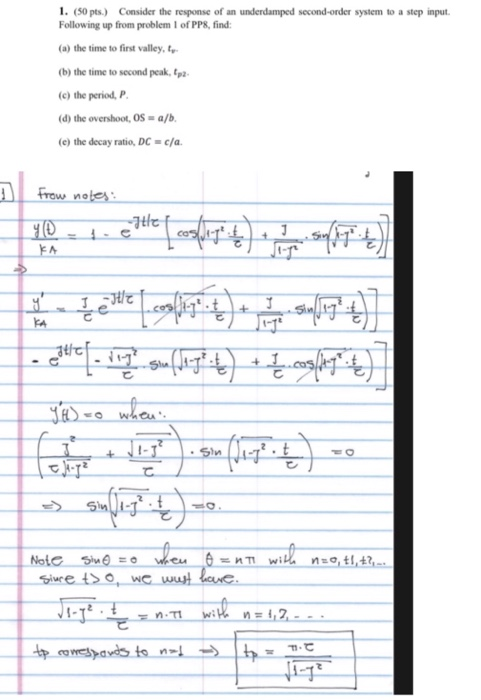 1. (50 pts.) Consider the response of an underdamped second-order system to a step input.
Following up from problem 1 of PP8, find:
(a) the time to first valley, t_v.
(b) the time to second peak, t_p2.
(c) the period, P.
(d) the overshoot, OS = a/b.
(e) the decay ratio, DC = c/a.
1 From notes:
y(t)/KA = 1 - e^(-ζt/τ) [cos(√(1-ζ²)·t/τ) + ζ/√(1-ζ²) · sin(√(1-ζ²)·t/τ)]
⇒
y'/KA = ζ/τ e^(-ζt/τ) [cos(√(1-ζ²)·t/τ) + ζ/√(1-ζ²) · sin(√(1-ζ²)·t/τ)]
- e^(-ζt/τ) [-√(1-ζ²)/τ · sin(√(1-ζ²)·t/τ) + ζ/τ · cos(√(1-ζ²)·t/τ)]
y'(t)=0 when:
(ζ²/(τ√(1-ζ²)) + √(1-ζ²)/τ) · sin(√(1-ζ²)·t/τ) = 0
⇒ sin(√(1-ζ²)·t/τ) = 0.
Note sinθ = 0 when θ = nπ with n=0,±1,±2,...
since t>0, we must have.
√(1-ζ²)·t/τ = n·π with n=1,2,---
tp corresponds to n=1 ⇒ tp = π·τ/√(1-ζ²)